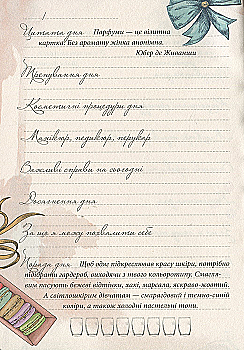 Цитата дня Парфуми — це візитна
картка! Без аромату жінка анонімна.
Юбер де Живанши
Тренування дня
Косметичні процедури дня
Манікюр, педикюр, перукар
Важливі справи на сьогодні
Досягнення дня
За що я можу похвалити себе
Порада дня Щоб одяг підкреслював красу шкіри, потрібно
підібрати гардероб, виходячи з твого кольоротипу. Смагля-
вим пасують бежеві відтінки, хакі, марсала, яскраво-жовтий.
А світлошкірим дівчатам — смарагдовий і темно-синій
коліри, а також холодні пастельні тони.